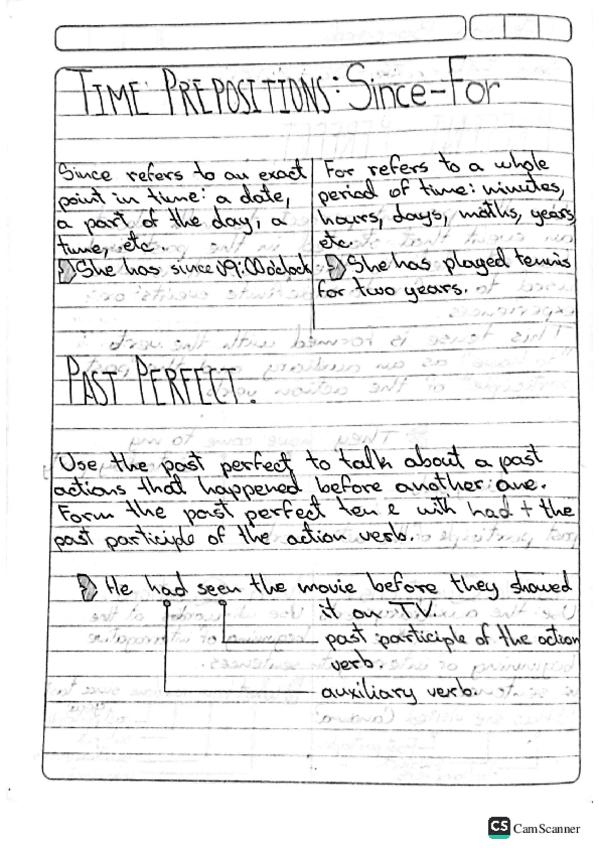 TIME PREPOSITIONS: Since-For
Since refers to an exact
point in time: a date,
a part of the day, a
time, etc.
She has since 09:00 o'clock
For refers to a whole
period of time: minutes,
hours, days, moths, years,
etc.
She has played tennis
for two years.
PAST PERFECT.
Use the past perfect to talk about a past
actions that happened before another one.
Form the past perfect ten e with had + the
past participle of the action verb.
He had seen the movie before they showed
it on T.V.
past participle of the action
verb.
auxiliary verb.
CS CamScanner